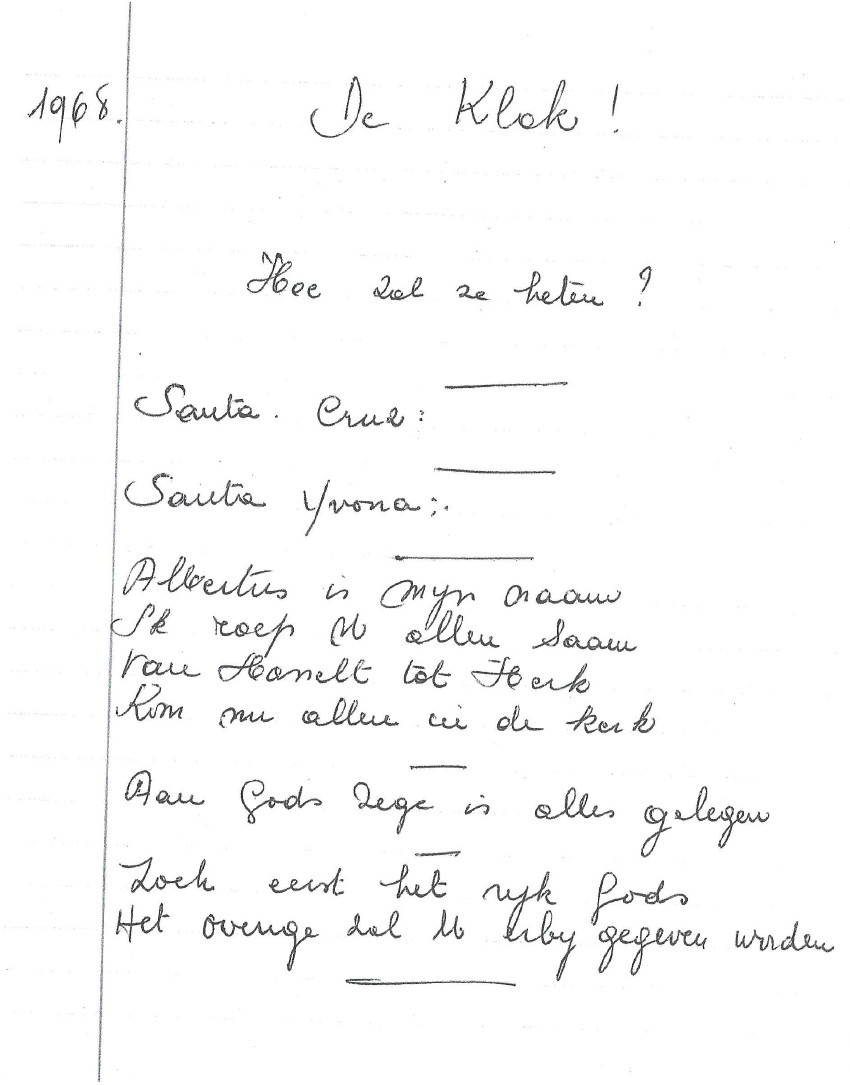 1968.
De Klok!
Hoe zal ze heten?
Santa. Cruz:
Santa Yvona:.
Albertus is mijn naam
Ik roep U allen saam
Van Hasselt tot Herk
Kom nu allen in de kerk
Aan Gods zege is alles gelegen
Zoek eerst het rijk Gods
Het overige zal U erbij gegeven worden